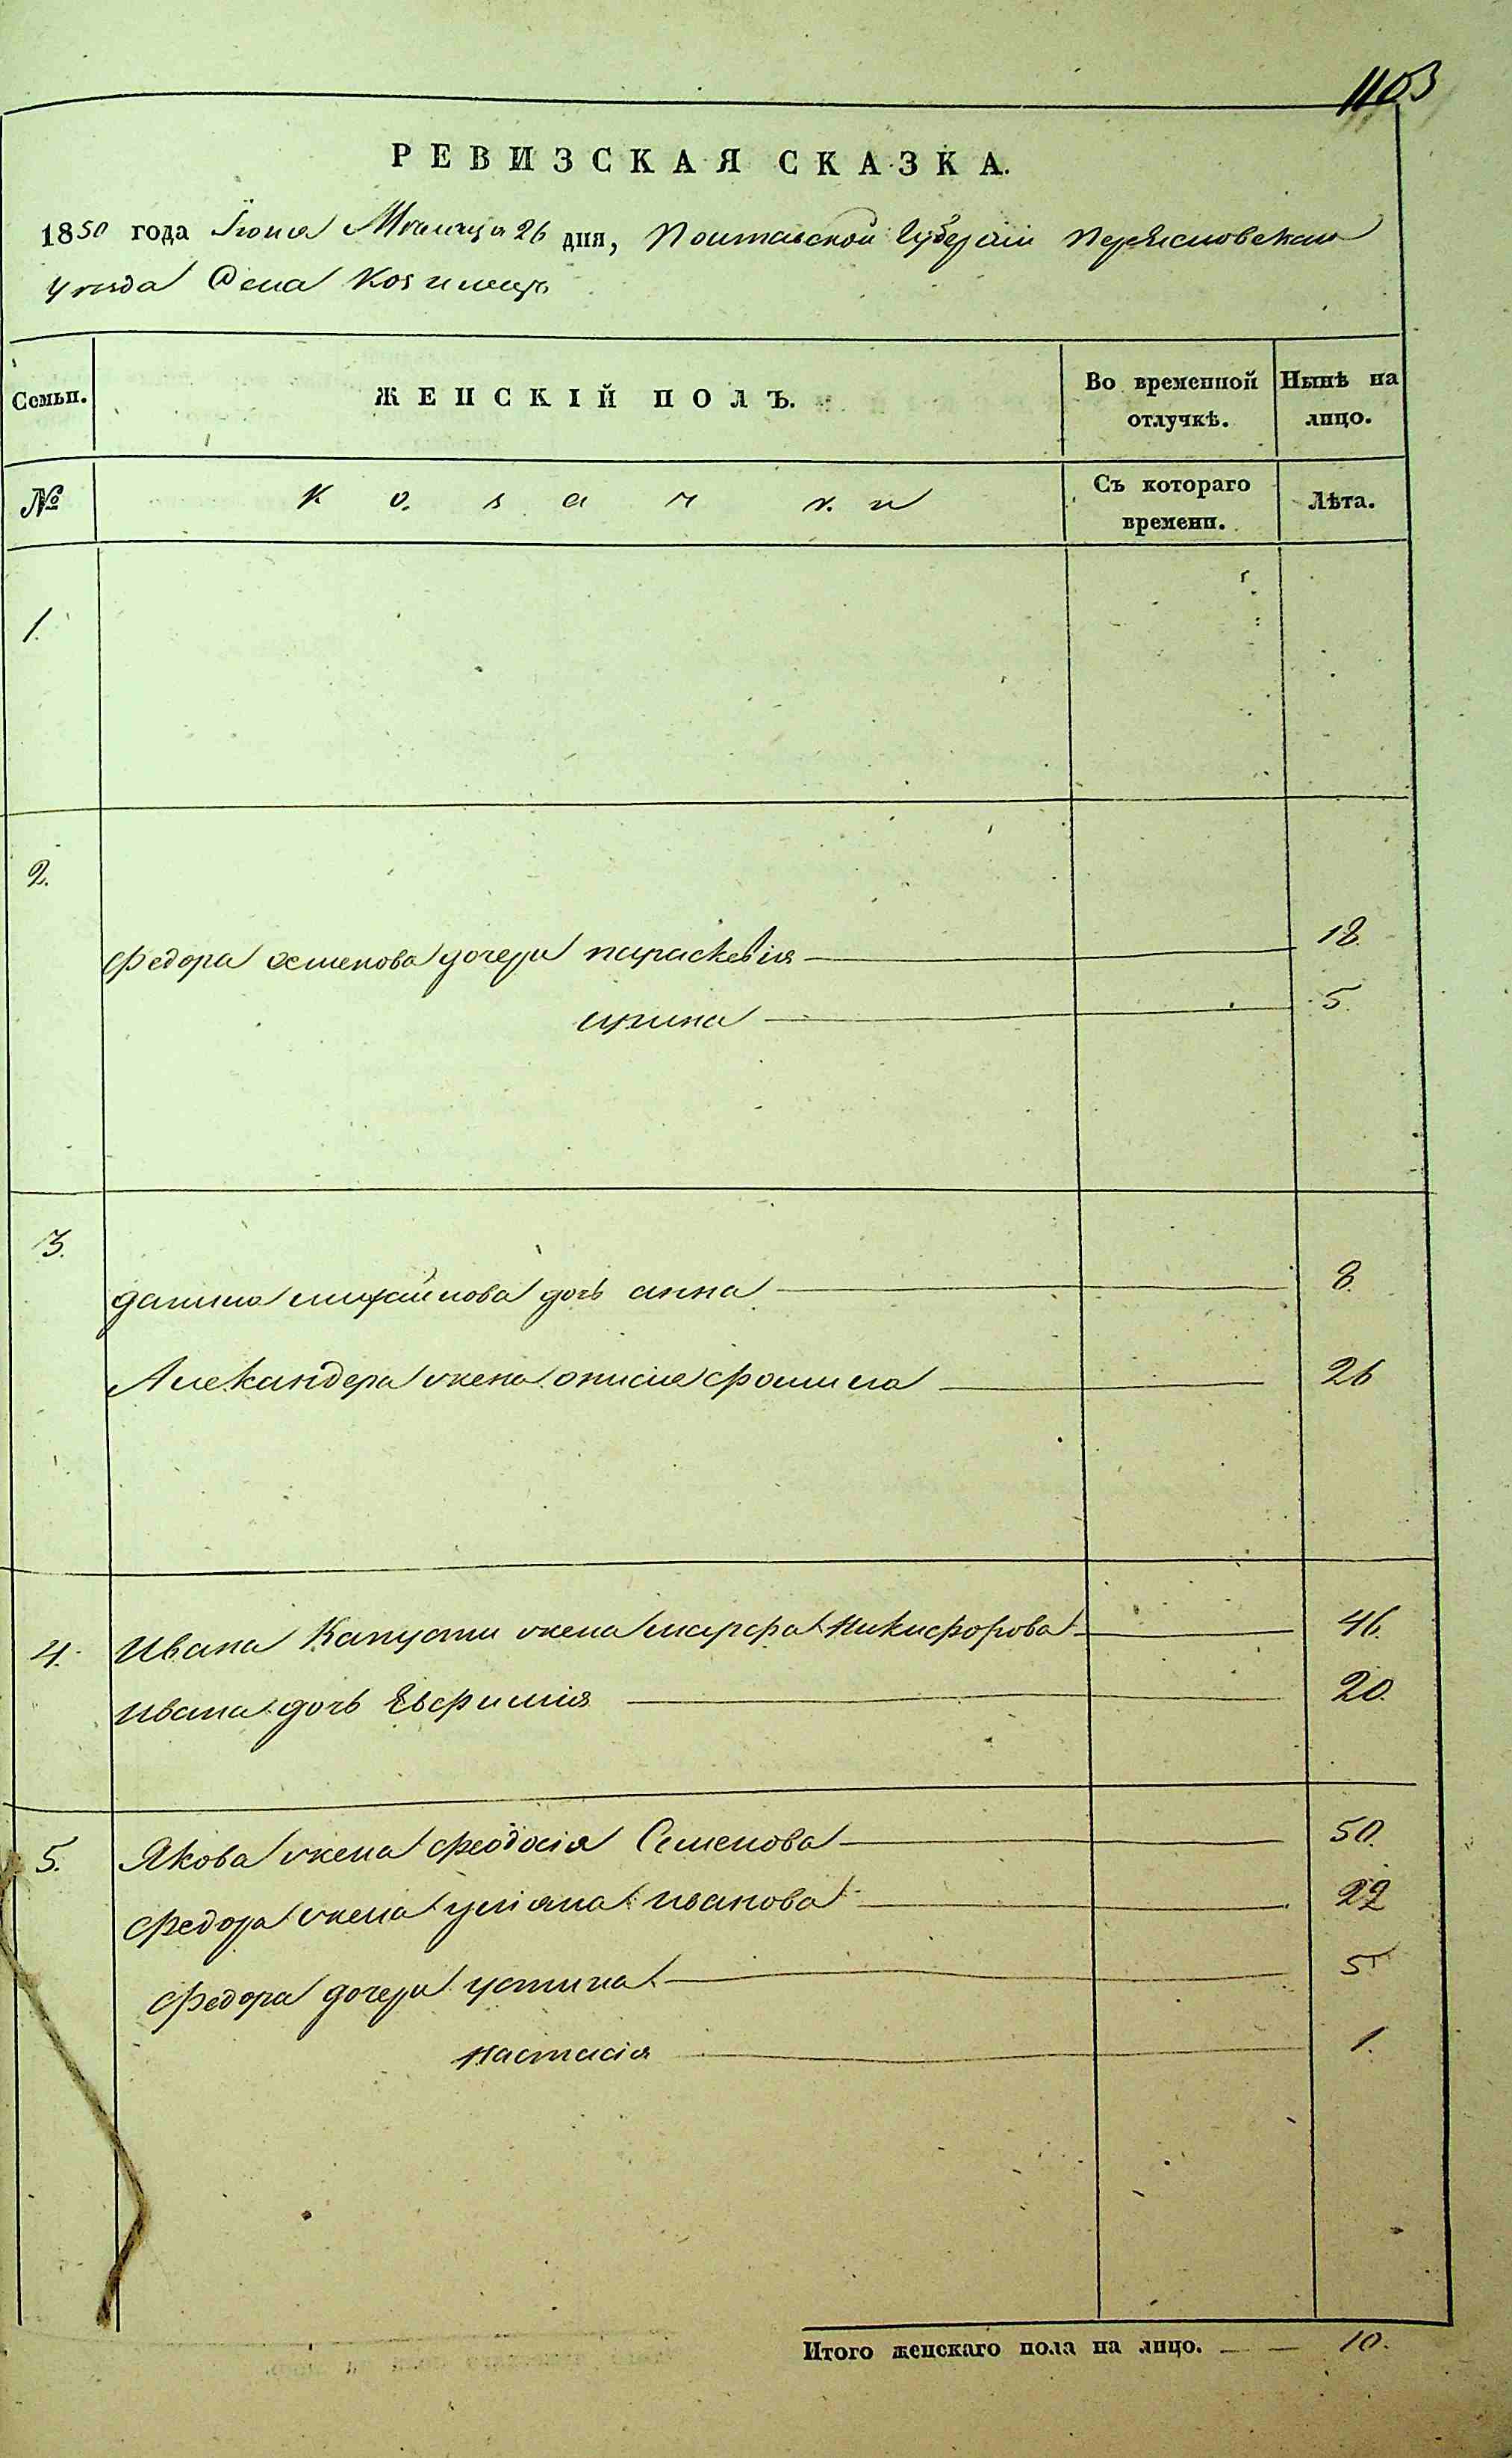 1103
РЕВИЗСКАЯ СКАЗКА.
1850 года Іюня Мѣсяца 26 дня, Полтавской Губерніи Переясловскаго
уѣзда Села
Семьи. ЖЕНСКІЙ ПОЛЪ. Во временной отлучкѣ. Нынѣ на лицо.
№ Козачки Съ котораго времени. Лѣта.
1.
2.
Федора дочери параскевія 18.
ирина 5.
3.
данила михайлова дочь анна 8.
Александера жена фомина 26
4. Ивана Капусты жена марфа Никифорова 46.
Ивана дочь Евфимія 20.
5. Якова жена феодосія Семенова 50.
Федора жена уліяна иванова 22
Федора дочери устина 5
настасія 1.
Итого женскаго пола на лицо. 10.